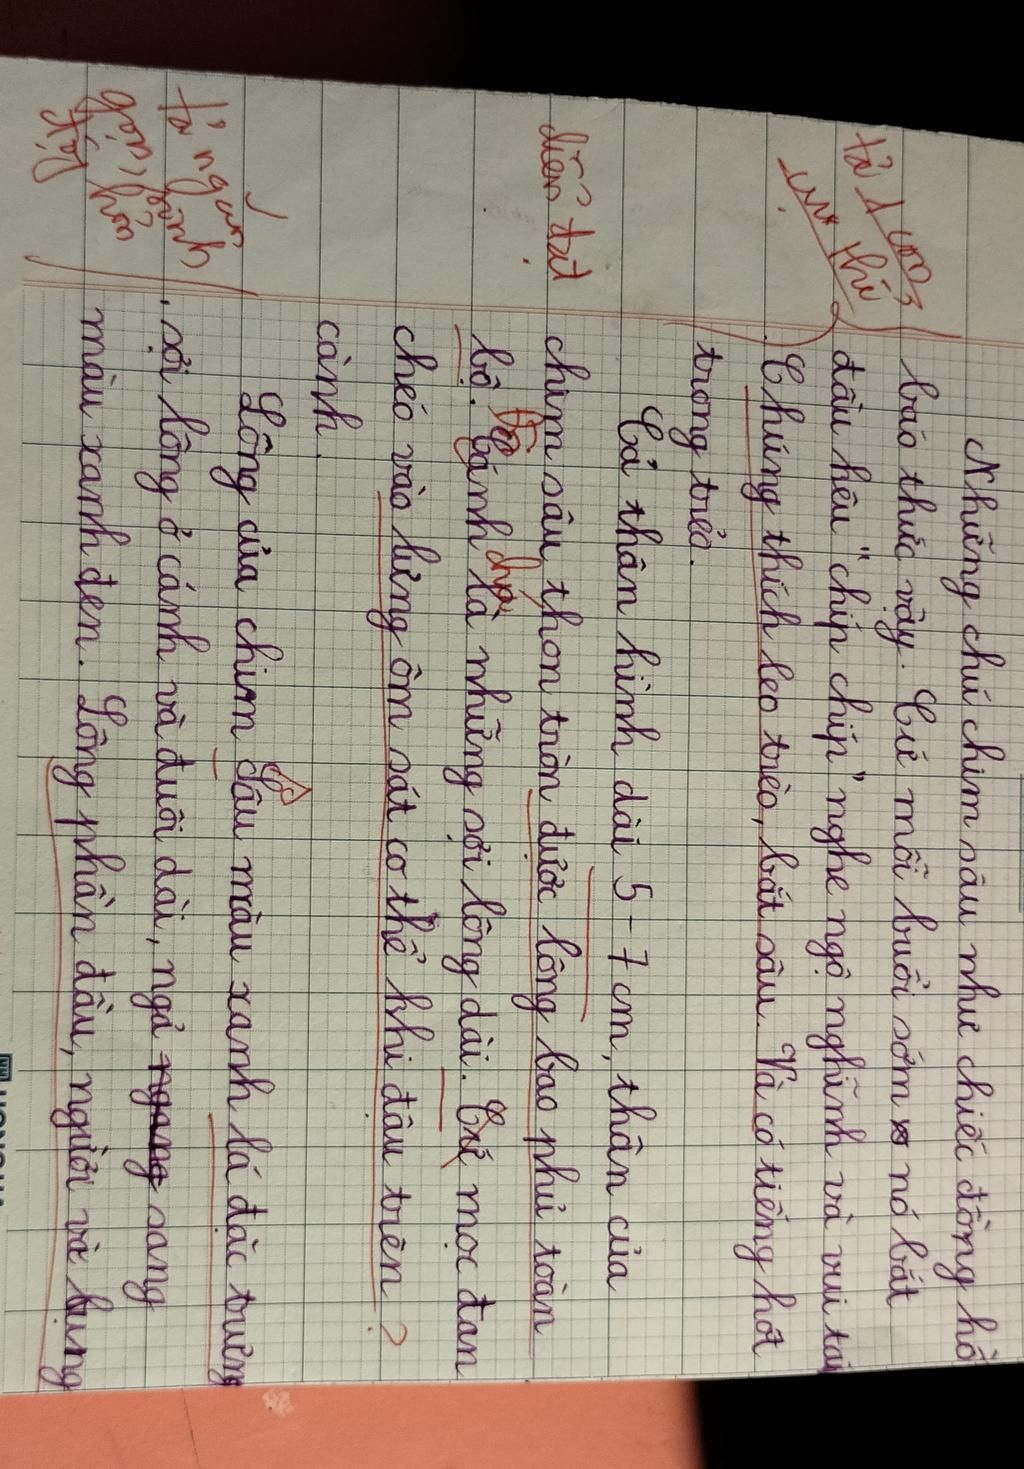 Những chú chim sâu như chiếc đồng hồ
báo thức vậy. Cứ mỗi buổi sớm nó bắt
đầu kêu "chíp chíp" nghe ngộ nghĩnh và vui tai
. Chúng thích leo trèo, bắt sâu. Và có tiếng hót
trong trẻo.
Cả thân hình dài 5-7 cm, thân của
chim sâu thon tròn được lông bao phủ toàn
bộ. cánh là những sợi lông dài. Cứ mọc đan
chéo vào lưng ôm sát cơ thể khi đậu trên
cành.
Lông của chim sâu màu xanh lá đặc trưng
, sợi lông ở cánh và đuôi dài, ngả ngang sang
màu xanh đen. Lông phần đầu, người và bụng
tả 1 con
cụ thể
diễn đạt
tả
?